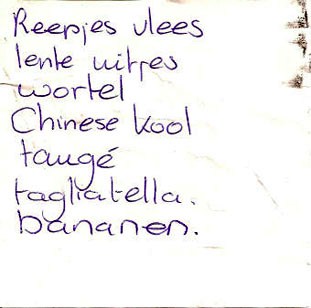 Reepjes vlees
lente uitjes
wortel
Chinese kool
taugé
tagliatella.
bananen.